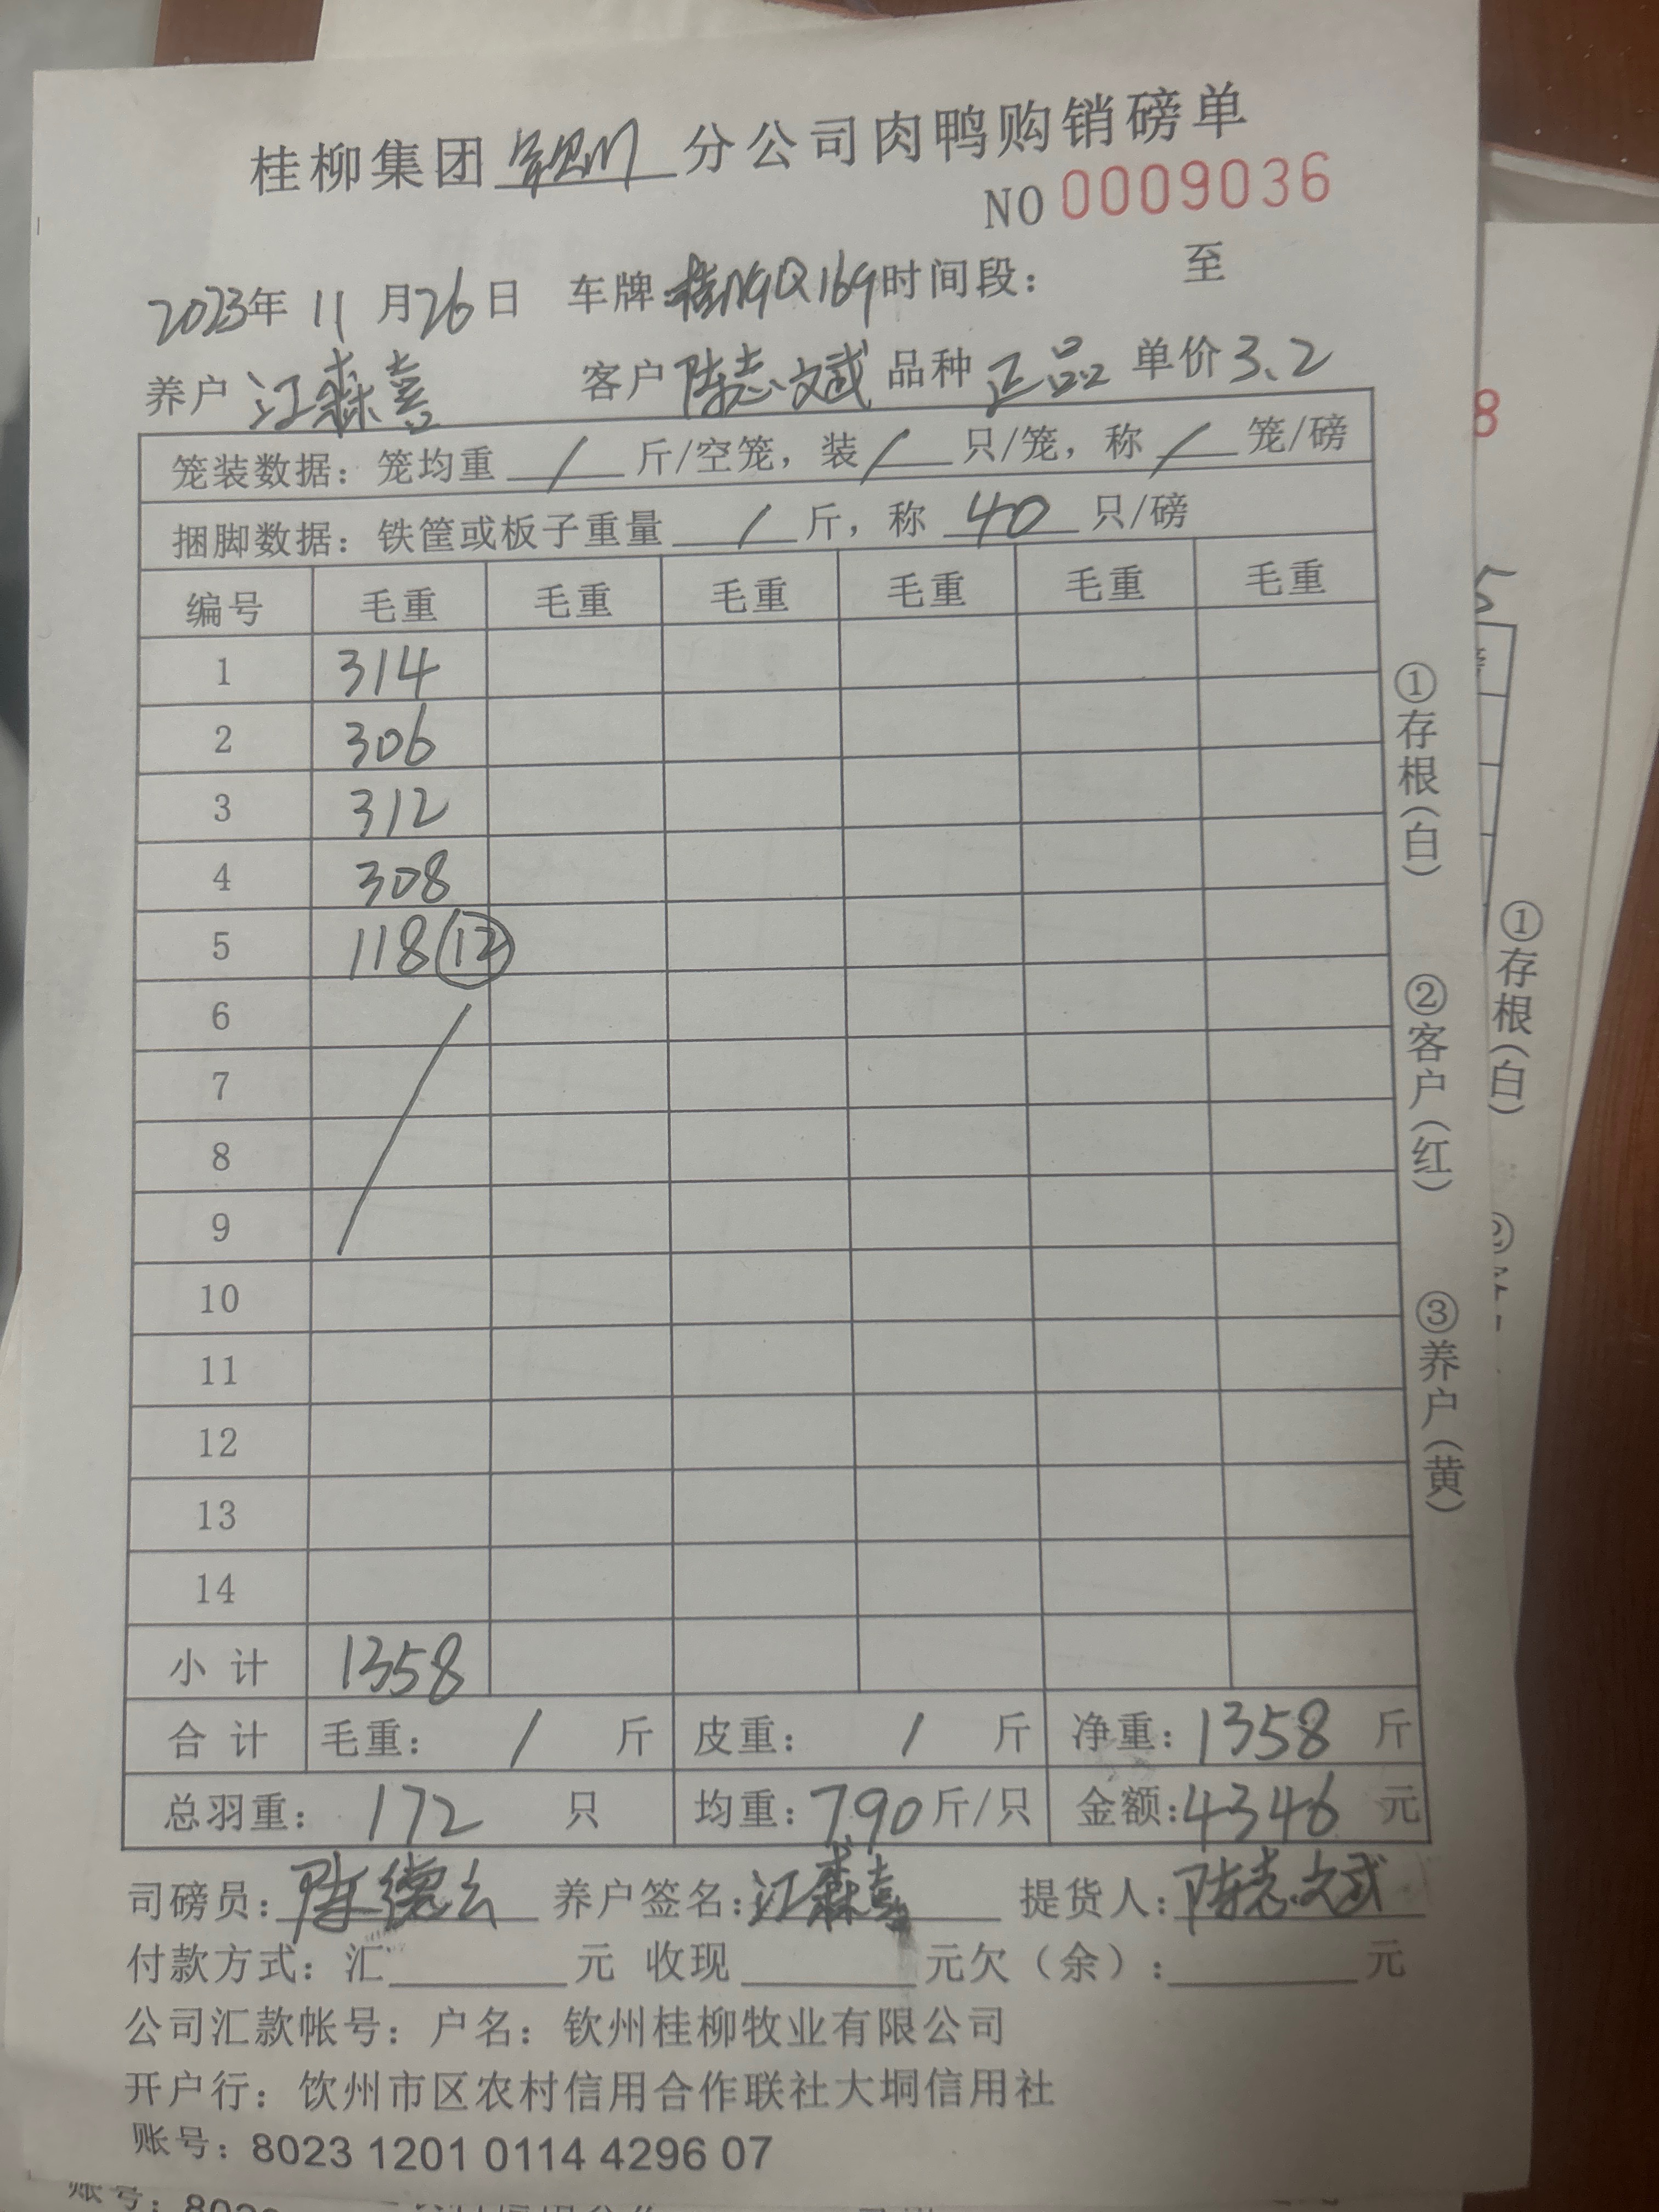 桂柳集团 钦州 分公司肉鸭购销磅单
NO 0009036
2023年 11 月 26 日 车牌:桂N9Q169 时间段: 至
养户 江森喜 客户 陈志斌 品种 正品 单价 3.2
笼装数据: 笼均重 / 斤/空笼, 装 / 只/笼, 称 / 笼/磅
捆脚数据: 铁筐或板子重量 / 斤, 称 40 只/磅
编号 毛重 毛重 毛重 毛重 毛重 毛重
1 314
2 306
3 312
4 308
5 118 ⑫
6
7
8
9
10
11
12
13
14
小 计 1358
合 计 毛重: / 斤 皮重: / 斤 净重: 1358 斤
总羽重: 172 只 均重: 7.90 斤/只 金额: 4346 元
司磅员: 陈德云 养户签名: 江森喜 提货人: 陈志斌
付款方式: 汇 元 收现 元欠(余): 元
公司汇款帐号: 户名: 钦州桂柳牧业有限公司
开户行: 饮州市区农村信用合作联社大垌信用社
账号: 8023 1201 0114 4296 07
①存根(白)
②客户(红)
③养户(黄)
8
①存根(白)
账号: 802